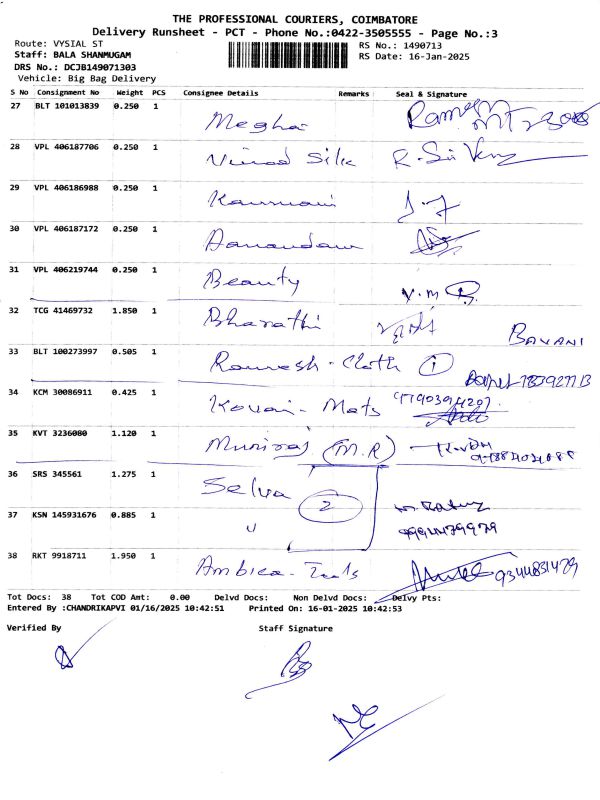 THE PROFESSIONAL COURIERS, COIMBATORE
Delivery Runsheet - PCT - Phone No.:0422-3505555 - Page No.:3
Route: VYSIAL ST RS No.: 1490713
Staff: BALA SHANMUGAM RS Date: 16-Jan-2025
DRS No.: DCJB149071303
Vehicle: Big Bag Delivery
S No Consignment No Weight PCS Consignee Details Remarks Seal & Signature
27 BLT 101013839 0.250 1 Megha
28 VPL 406187706 0.250 1 Vinod Silk
29 VPL 406186988 0.250 1
30 VPL 406187172 0.250 1
31 VPL 406219744 0.250 1 Beauty
32 TCG 41469732 1.850 1 Bharathi BAVANI
33 BLT 100273997 0.505 1 Ramesh-Cloth 1
34 KCM 30086911 0.425 1 Kovai-Mats
35 KVT 3236080 1.120 1 Muniraj (M.R)
36 SRS 345561 1.275 1 Selva 2
37 KSN 145931676 0.885 1 "
38 RKT 9918711 1.950 1 Ambica 9344831479
Tot Docs: 38 Tot COD Amt: 0.00 Delvd Docs: Non Delvd Docs: Delvy Pts:
Entered By :CHANDRIKAPVI 01/16/2025 10:42:51 Printed On: 16-01-2025 10:42:53
Verified By Staff Signature